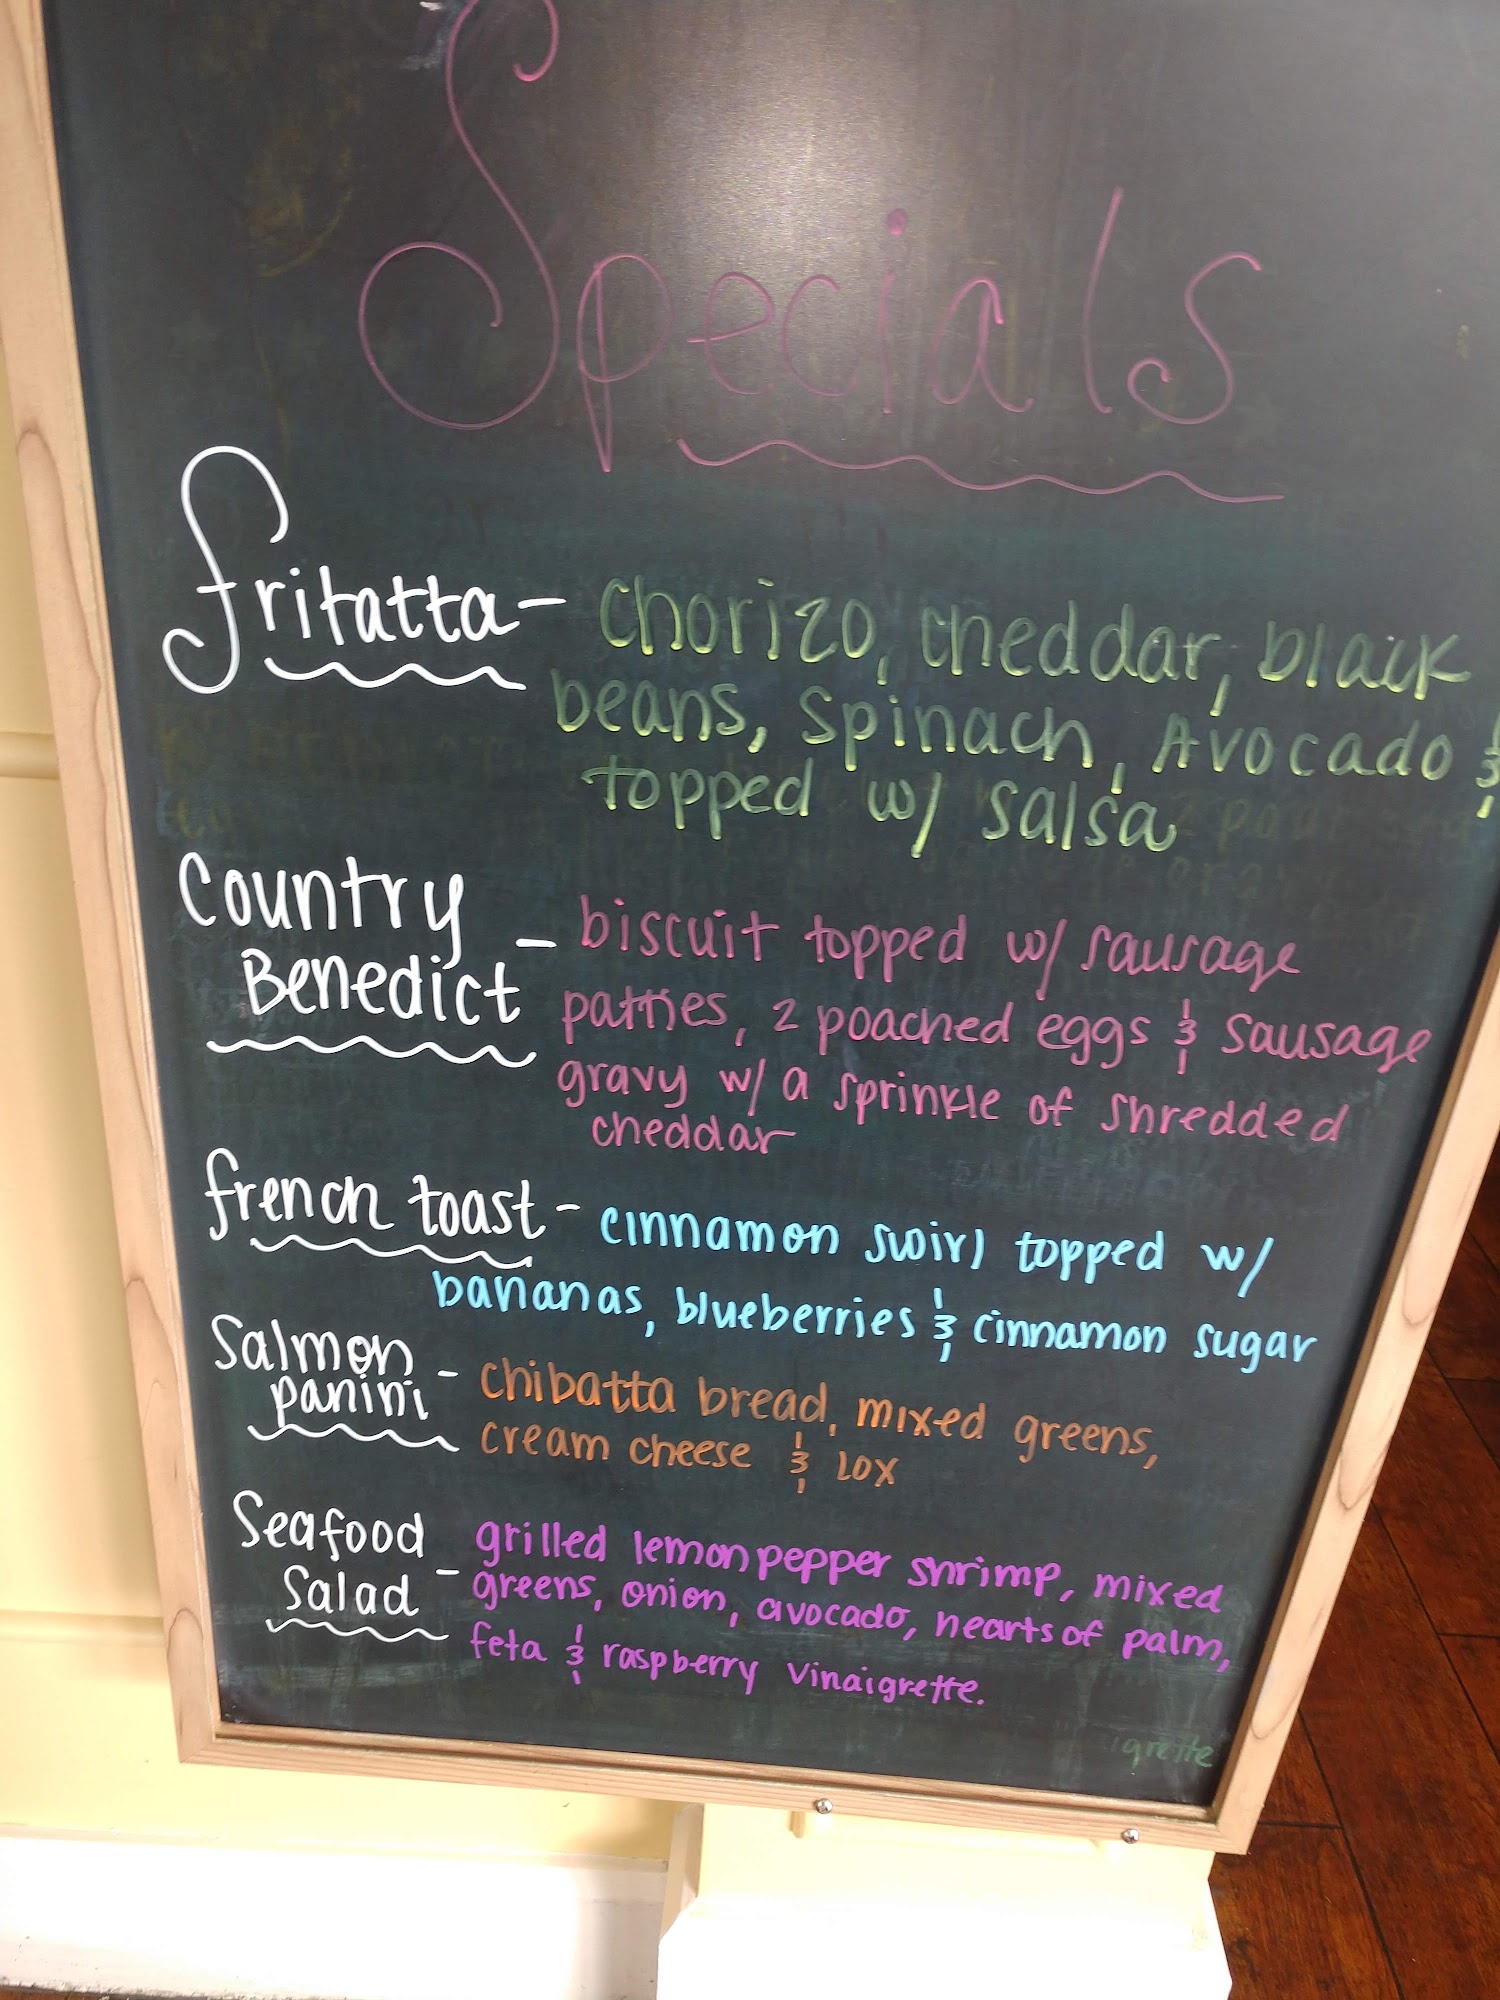 Specials
fritatta - chorizo, cheddar, black
beans, spinach, Avocado &
topped w/ salsa
Country
Benedict - biscuit topped w/ sausage
patties, 2 poached eggs & sausage
gravy w/ a sprinkle of shredded
cheddar
french toast - cinnamon swirl topped w/
bananas, blueberries & cinnamon sugar
Salmon
panini - chibatta bread, mixed greens,
cream cheese & lox
Seafood
Salad - grilled lemon pepper shrimp, mixed
greens, onion, avocado, hearts of palm,
feta & raspberry vinaigrette.
igrette